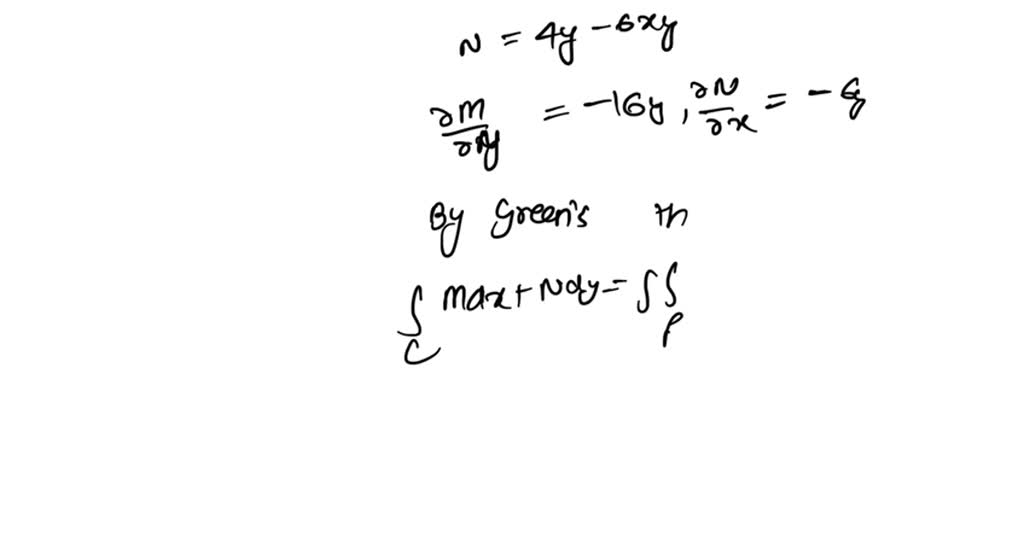 N = 4y - 6xy
∂M/∂y = -16y, ∂N/∂x = -6y
By Green's th
∫_C Mdx + Ndy = ∫∫_R